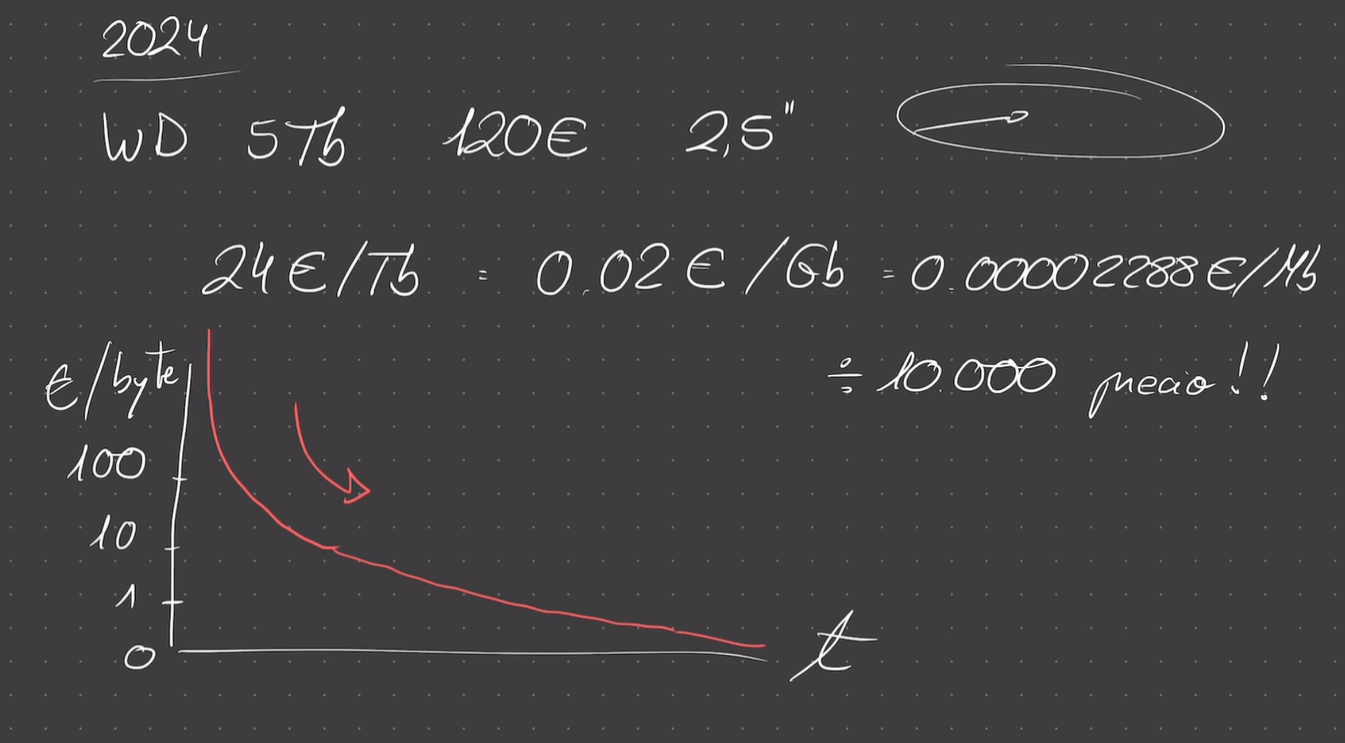 2024
WD 5Tb 120€ 2,5"
24€/Tb = 0.02€/Gb = 0.00002288€/Mb
÷ 10.000 precio!!
€/byte
100
10
1
0
t